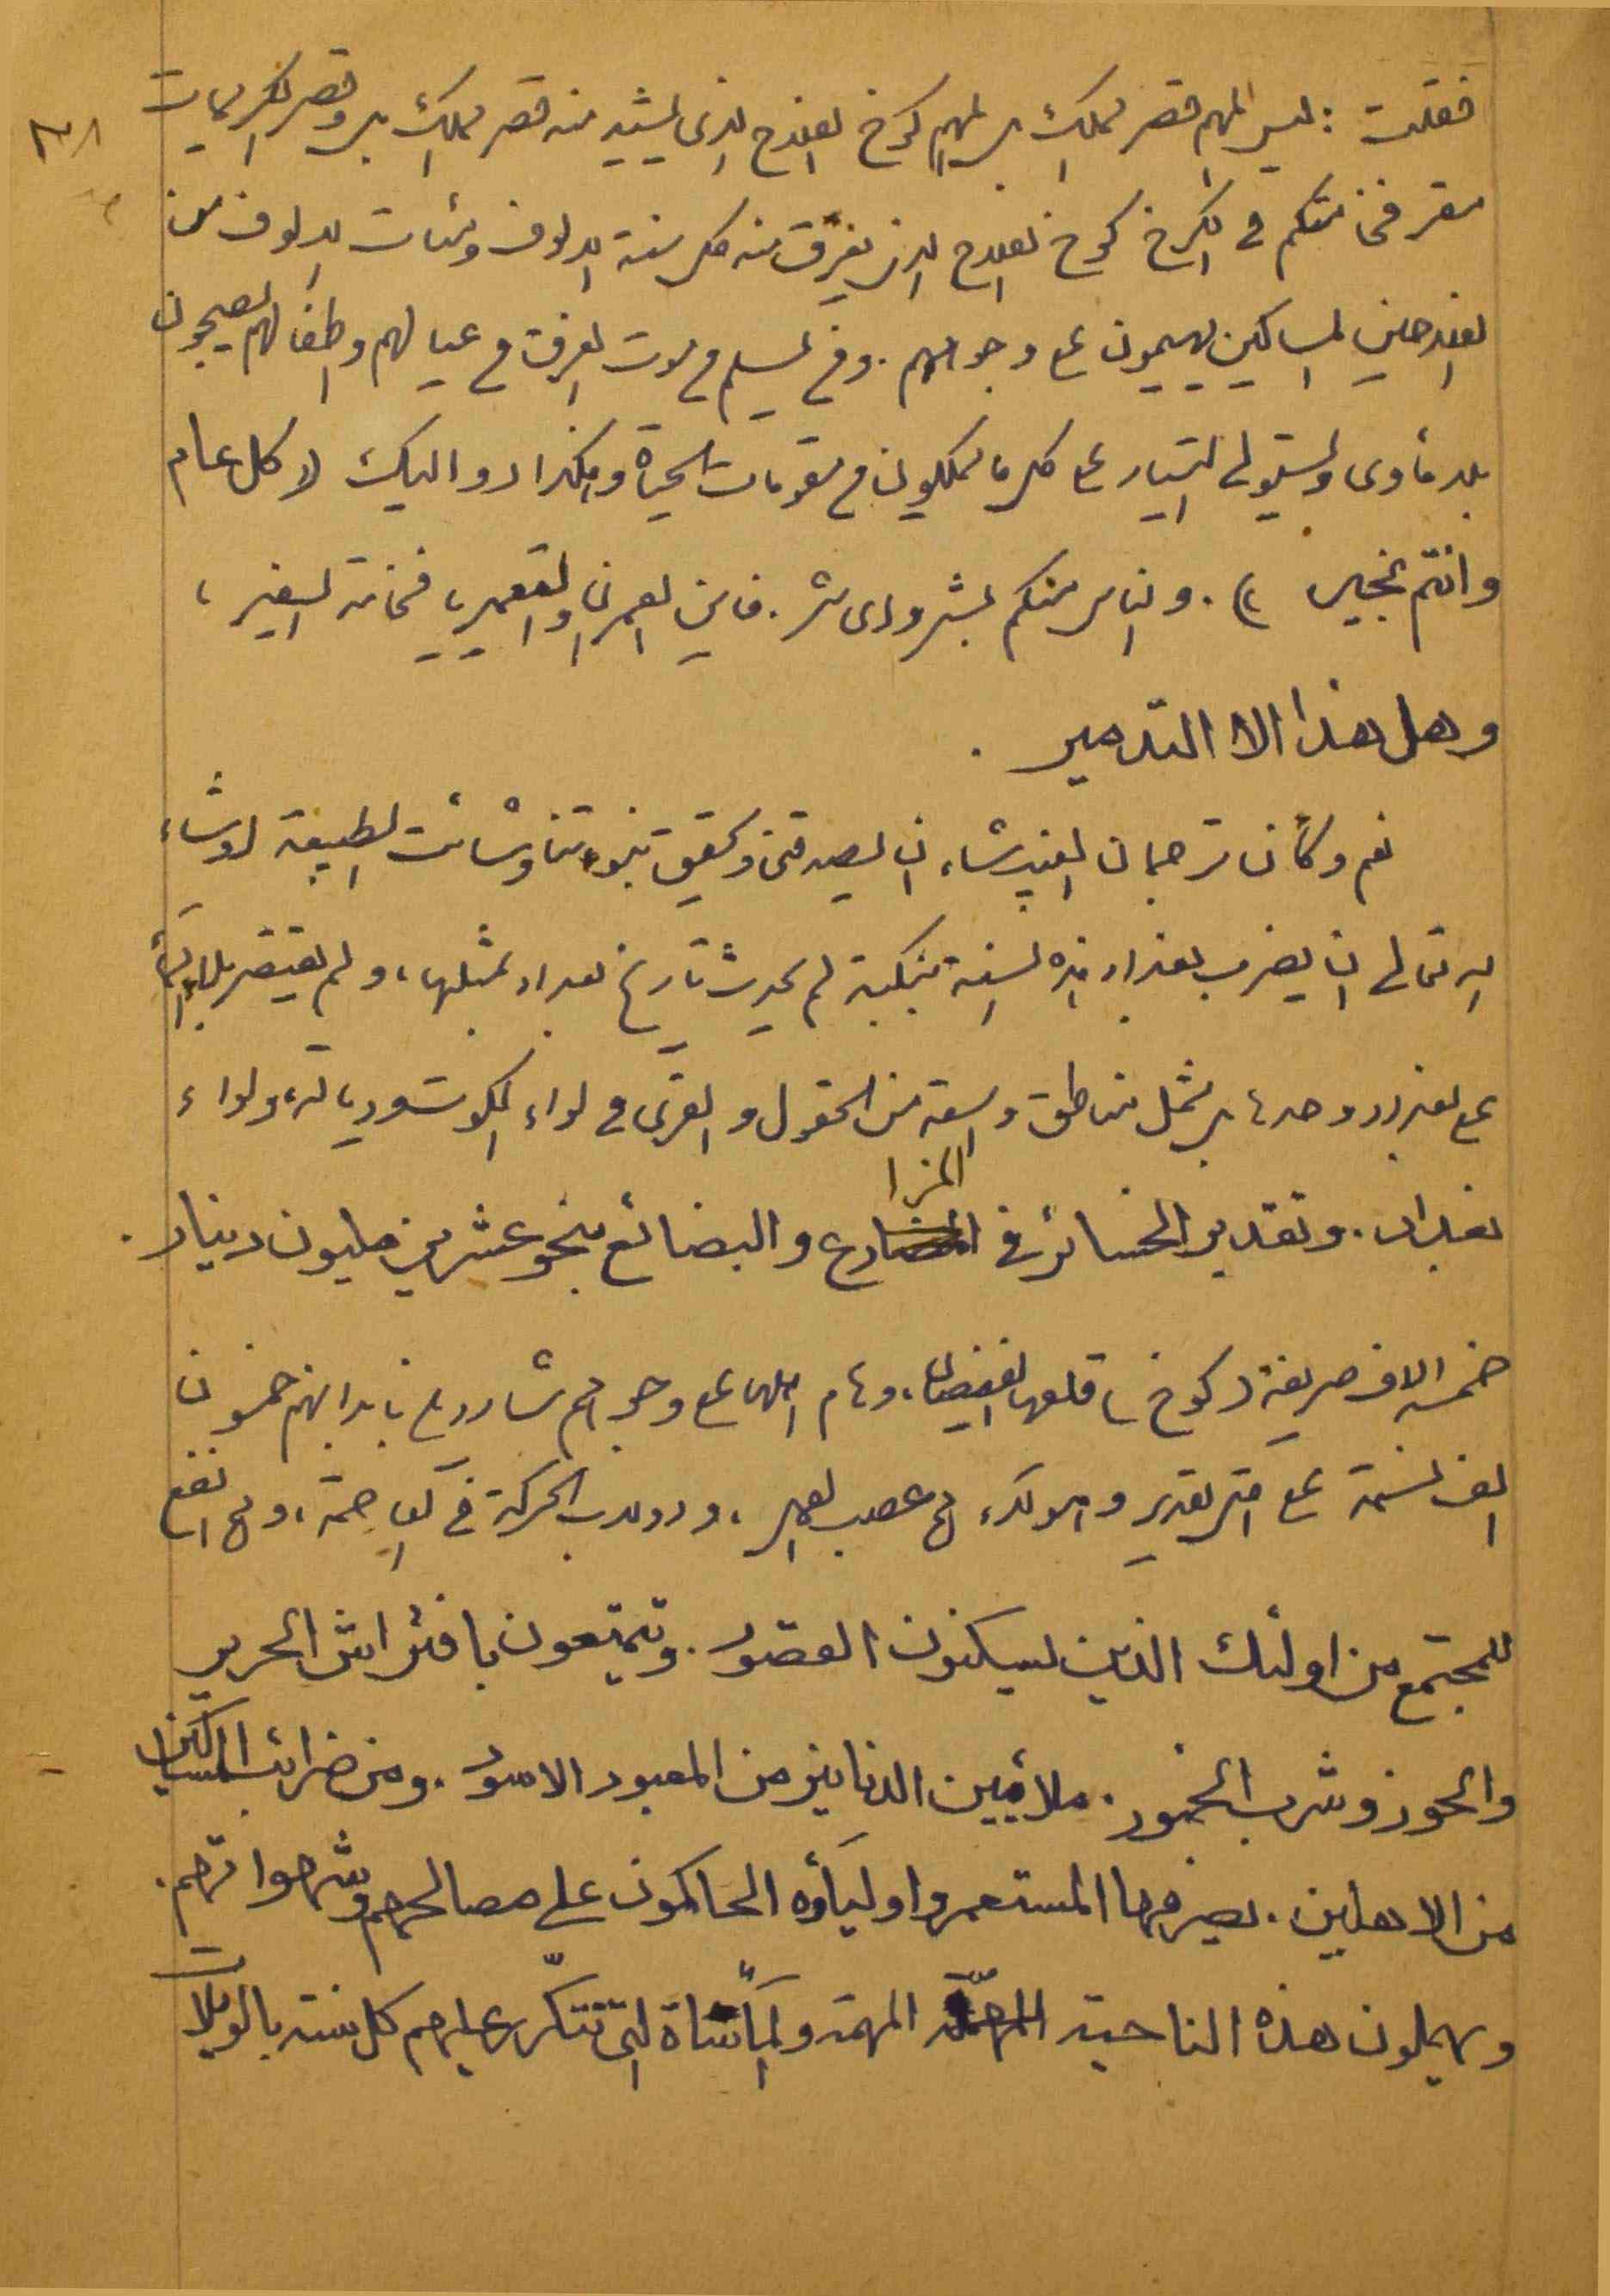 ٣٨
فقلت : ليس المهم قصر مملك بل المهم كوخ الفلاح الذي يشيد منه قصر مملك بل وقصر الكريمات
مقر فخامتكم في الكرخ كوخ الفلاح الذي يغرق منه كل سنة الالوف ومئات الالوف من
الفلاحين المساكين يهيمون على وجوههم . ومن يسلم من موت الغرق من عيالهم واطفالهم يصبحون
بلا مأوى ويستولي التيار على كل ما يملكون من مقومات الحياة وهكذا دواليك لا كل عام
وانتم بخير ) . والناس منكم بشر وأي شر . فاين العمران والتعمير يا فخامة السفير ،
وهل هذا الا التدمير .
نعم وكان ترجمان السفير شاء ان يصدقني وتحقيق تنبوء تنا وشائت الطبيعة او شاء
الله تعالى ان يضرب بغداد هذه السنة بنكبة لم يحدث تاريخ بغداد بمثلها ، ولم يقتصر البلاء
على بغداد وحدها بل شمل مناطق واسعة من الحقول والقرى في لواء الكوت وديالة ، ولواء
بغداد . وتقدير الخسائر في المزارع والبضائع بنحو عشرين مليون دينار .
خمسة الاف صريفة وكوخ اقلعها الفيضان ، وهام اهلها على وجوههم شاردين بابدانهم خمسون
الف نسمة على اقل تقدير وهولاء هم عصب العمل ، ودولاب الحركة في العاصمة ، وهم انفع
للمجتمع من اولئك الذين يسكنون القصور . ويتمتعون بافتراش الحرير
والخوز وشرب الخمور . ملائيين الدنانيز من المعبود الاسود . ومن ضرائب المساكين
من الاهلين . يصرفها المستعمر واوليآؤه الحاكمون على مصالحهم وشهواتهم .
ويهملون هذه الناحية المهمة والمأساة التي تتكرر عليهم كل سنة بالويلات